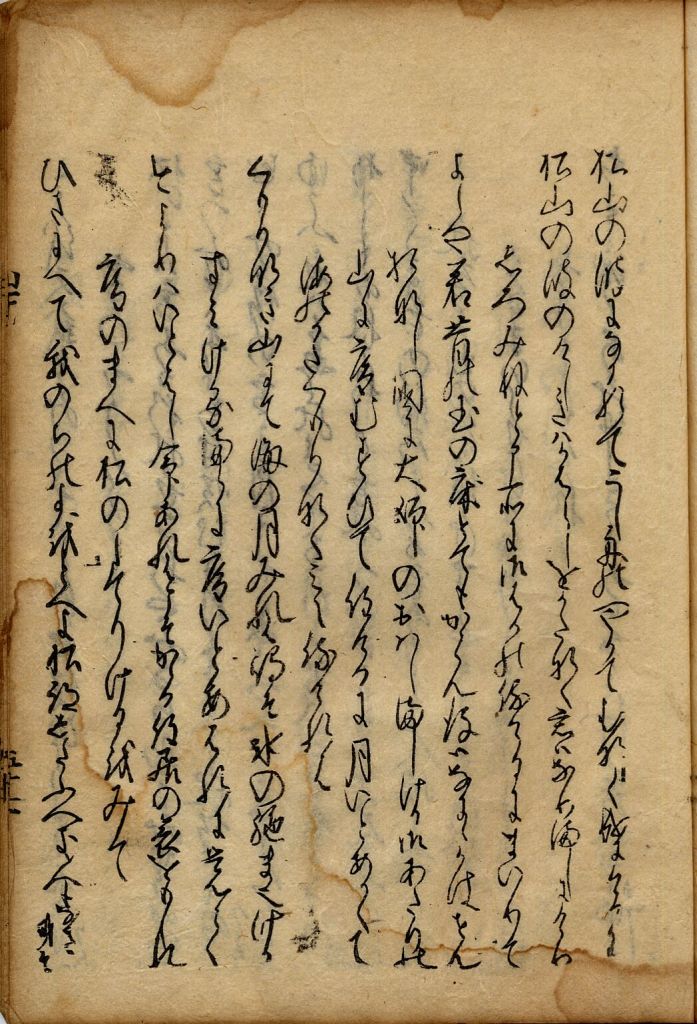 松山の波になかれてこし舟のやかてむなしく成にけるかな
松山の波のけしきはかはらしをかたなく君はなりましにけり
しろみねと申所に御はかの侍けるにまいりて
よしや君昔の玉の床とてもかゝらん後はなにゝかはせん
おなし国に大師のおはしましける御あたりの
山に庵むすひて住けるに月いとあかくて
海のかたくもりなくみえ侍けれは
くもりなき山にて海の月みれは嶋そ氷の絶まなりける
すみけるまゝに庵いとあはれにおほえて
今よりはいとはし命あれはこそかゝる住居の哀をもしれ
庵のまへに松のたてりけるをみて
ひさにへて我のちのよをとへよ松跡したふへき人もなき身そ